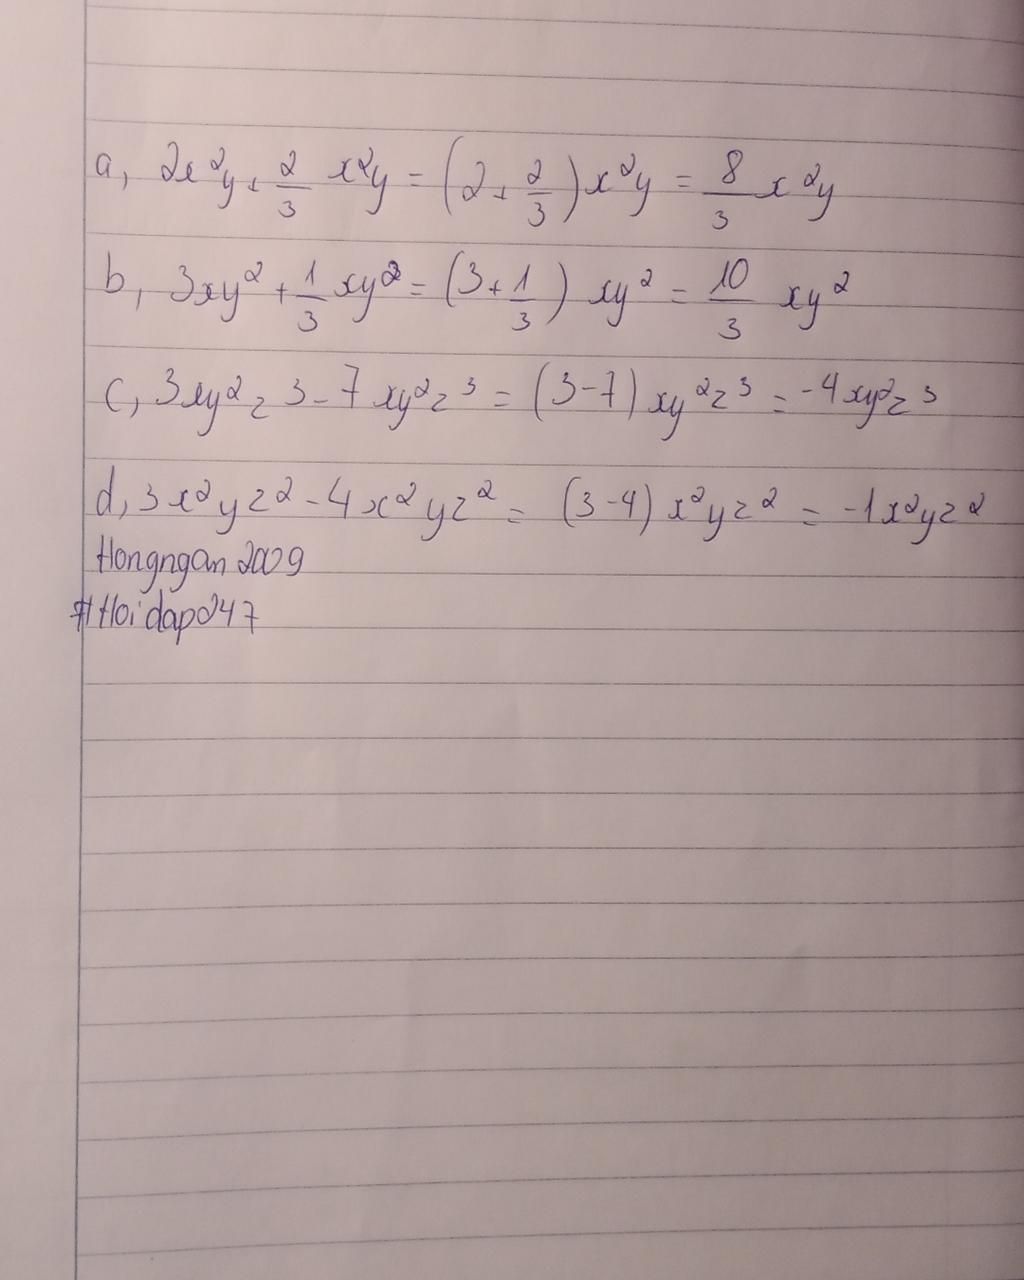 a, 2x²y + 2/3 x²y = (2 + 2/3) x²y = 8/3 x²y
b, 3xy² + 1/3 xy² = (3 + 1/3) xy² = 10/3 xy²
c, 3xy²z³ - 7xy²z³ = (3-7) xy²z³ = -4xy²z³
d, 3x²yz² - 4x²yz² = (3-4) x²yz² = -1x²yz²
Hongngan2009
#Hoidap247